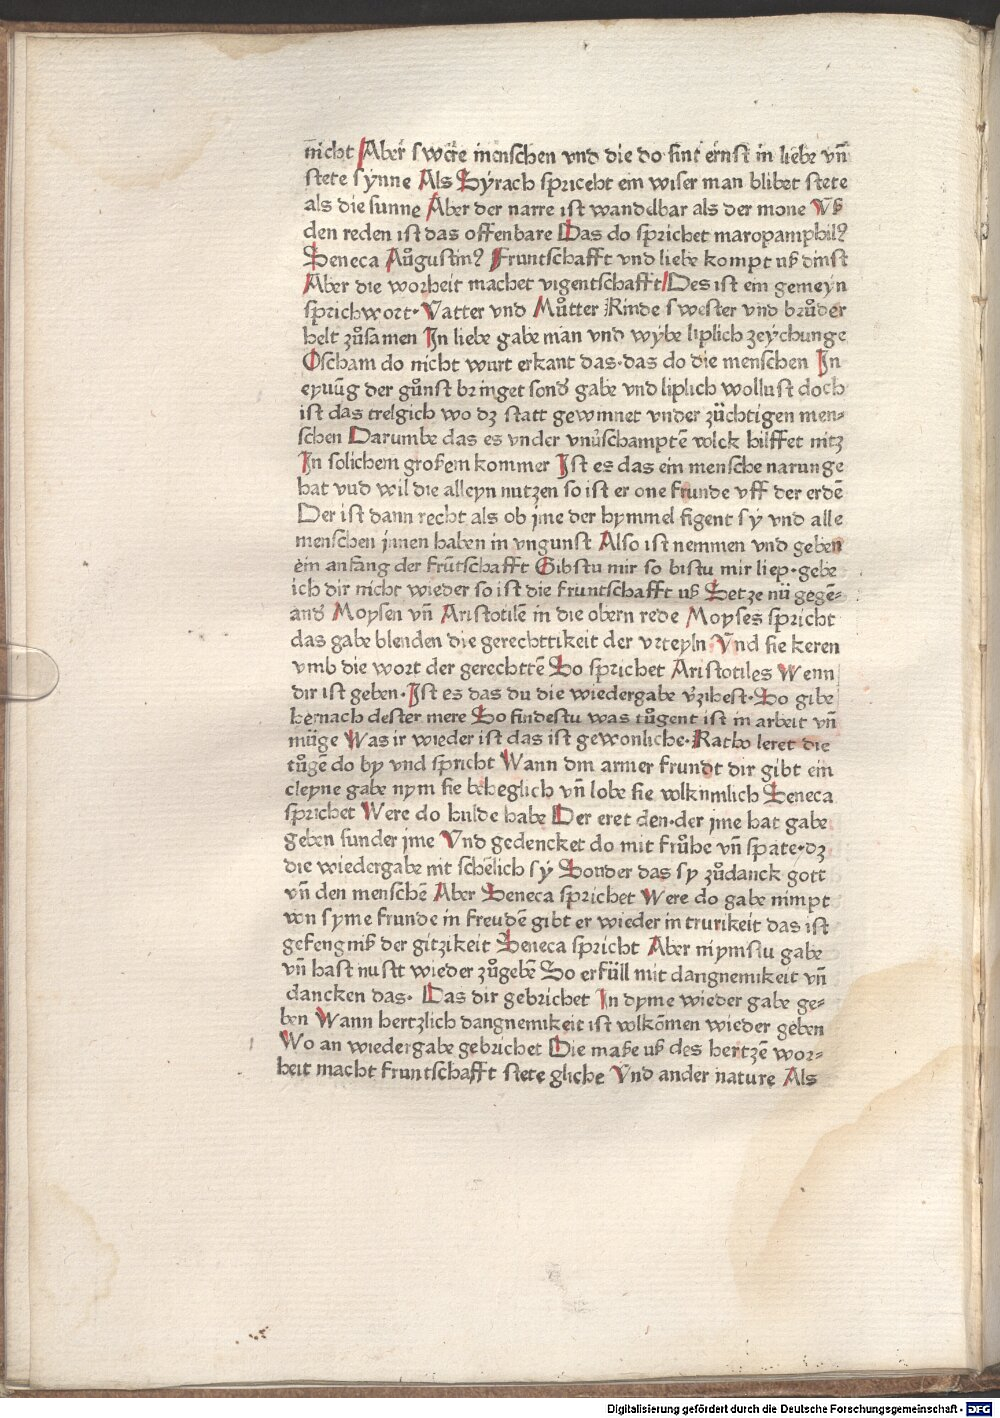 nicht Aber swere menschen vnd die do sint ernst in liebe vn̄
stete synne Als Syrach spriceht ein wiser man blibet stete
als die sunne Aber der narre ist wandelbar als der mone Vß
den reden ist das offenbare Das do sprichet maropamphilꝰ
Seneca Auͦgustinꝰ Fruntschafft vnd liebe kompt uß dinst
Aber die worheit machet vigentschafft Des ist ein gemeyn
sprichwort· Vatter vnd Muͦtter Kinde swester vnd bruͦder
helt zuͦsamen In liebe gabe man vnd wybe liplich zeychunge
Oscham do nicht wurt erkant das·das do die menschen In
eyuūg der guͦnst bringet sond̛ gabe vnd liplich wollust doch
ist das treglich wo dz statt gewinnet vnder züchtigen men⸗
schen Darumbe das es vnder vnuͦschamptē volck hilffet nitz
In solichem großem kommer Ist es das ein mensche narunge
hat vnd wil die alleyn nutzen so ist er one frunde vff der erdē
Der ist dann recht als ob jme der hymmel figent sy vnd alle
menschen jnnen haben in vngunst Also ist nemmen vnd geben
ein anfang der frūtschafft Gibstu mir so bistu mir liep·gebe
ich dir nicht wieder so ist die fruntschafft uß Setze nü gegē⸗
and̛ Moysen vn̄ Aristotilē in die obern rede Moyses spricht
das gabe blenden die gerechttikeit der vrteyln Vnd sie keren
vmb die wort der gerechtē So sprichet Aristotiles Wenn
dir ist geben· Ist es das du die wiedergabe v̛zihest· So gibe
hernach dester mere So findestu was tuͦgent ist in arbeit vn̄
müge Was ir wieder ist das ist gewonliche· Katho leret die
tuͦgē do by vnd spricht Wann din armer frundt dir gibt ein
cleyne gabe nym sie beheglich vn̄ lobe sie volkumlich Seneca
sprichet Were do hulde habe Der eret den·der jme hat gabe
geben sunder jme Vnd gedencket do mit fruͦhe vn̄ spate·dz
die wiedergabe nit schēlich sy Sonder das sy zuͦdanck gott
vn̄ den menschē Aber Seneca sprichet Were do gabe nimpt
von syme frunde in freudē gibt er wieder in trurikeit das ist
gefengniß der gitzikeit Seneca spricht Aber nymstu gabe
vn̄ hast nustt wieder zuͦgebē So erfüll mit dangnemikeit vn̄
dancken das· Das dir gebrichet In dyme wieder gabe ge⸗
ben Wann hertzlich dangnemikeit ist volkōmen wieder geben
Wo an wiedergabe gebrichet Die maße uß des hertzē wor⸗
heit macht fruntschafft stete gliche Vnd ander nature Als
Digitalisierung gefördert durch die Deutsche Forschungsgemeinschaft - DFG